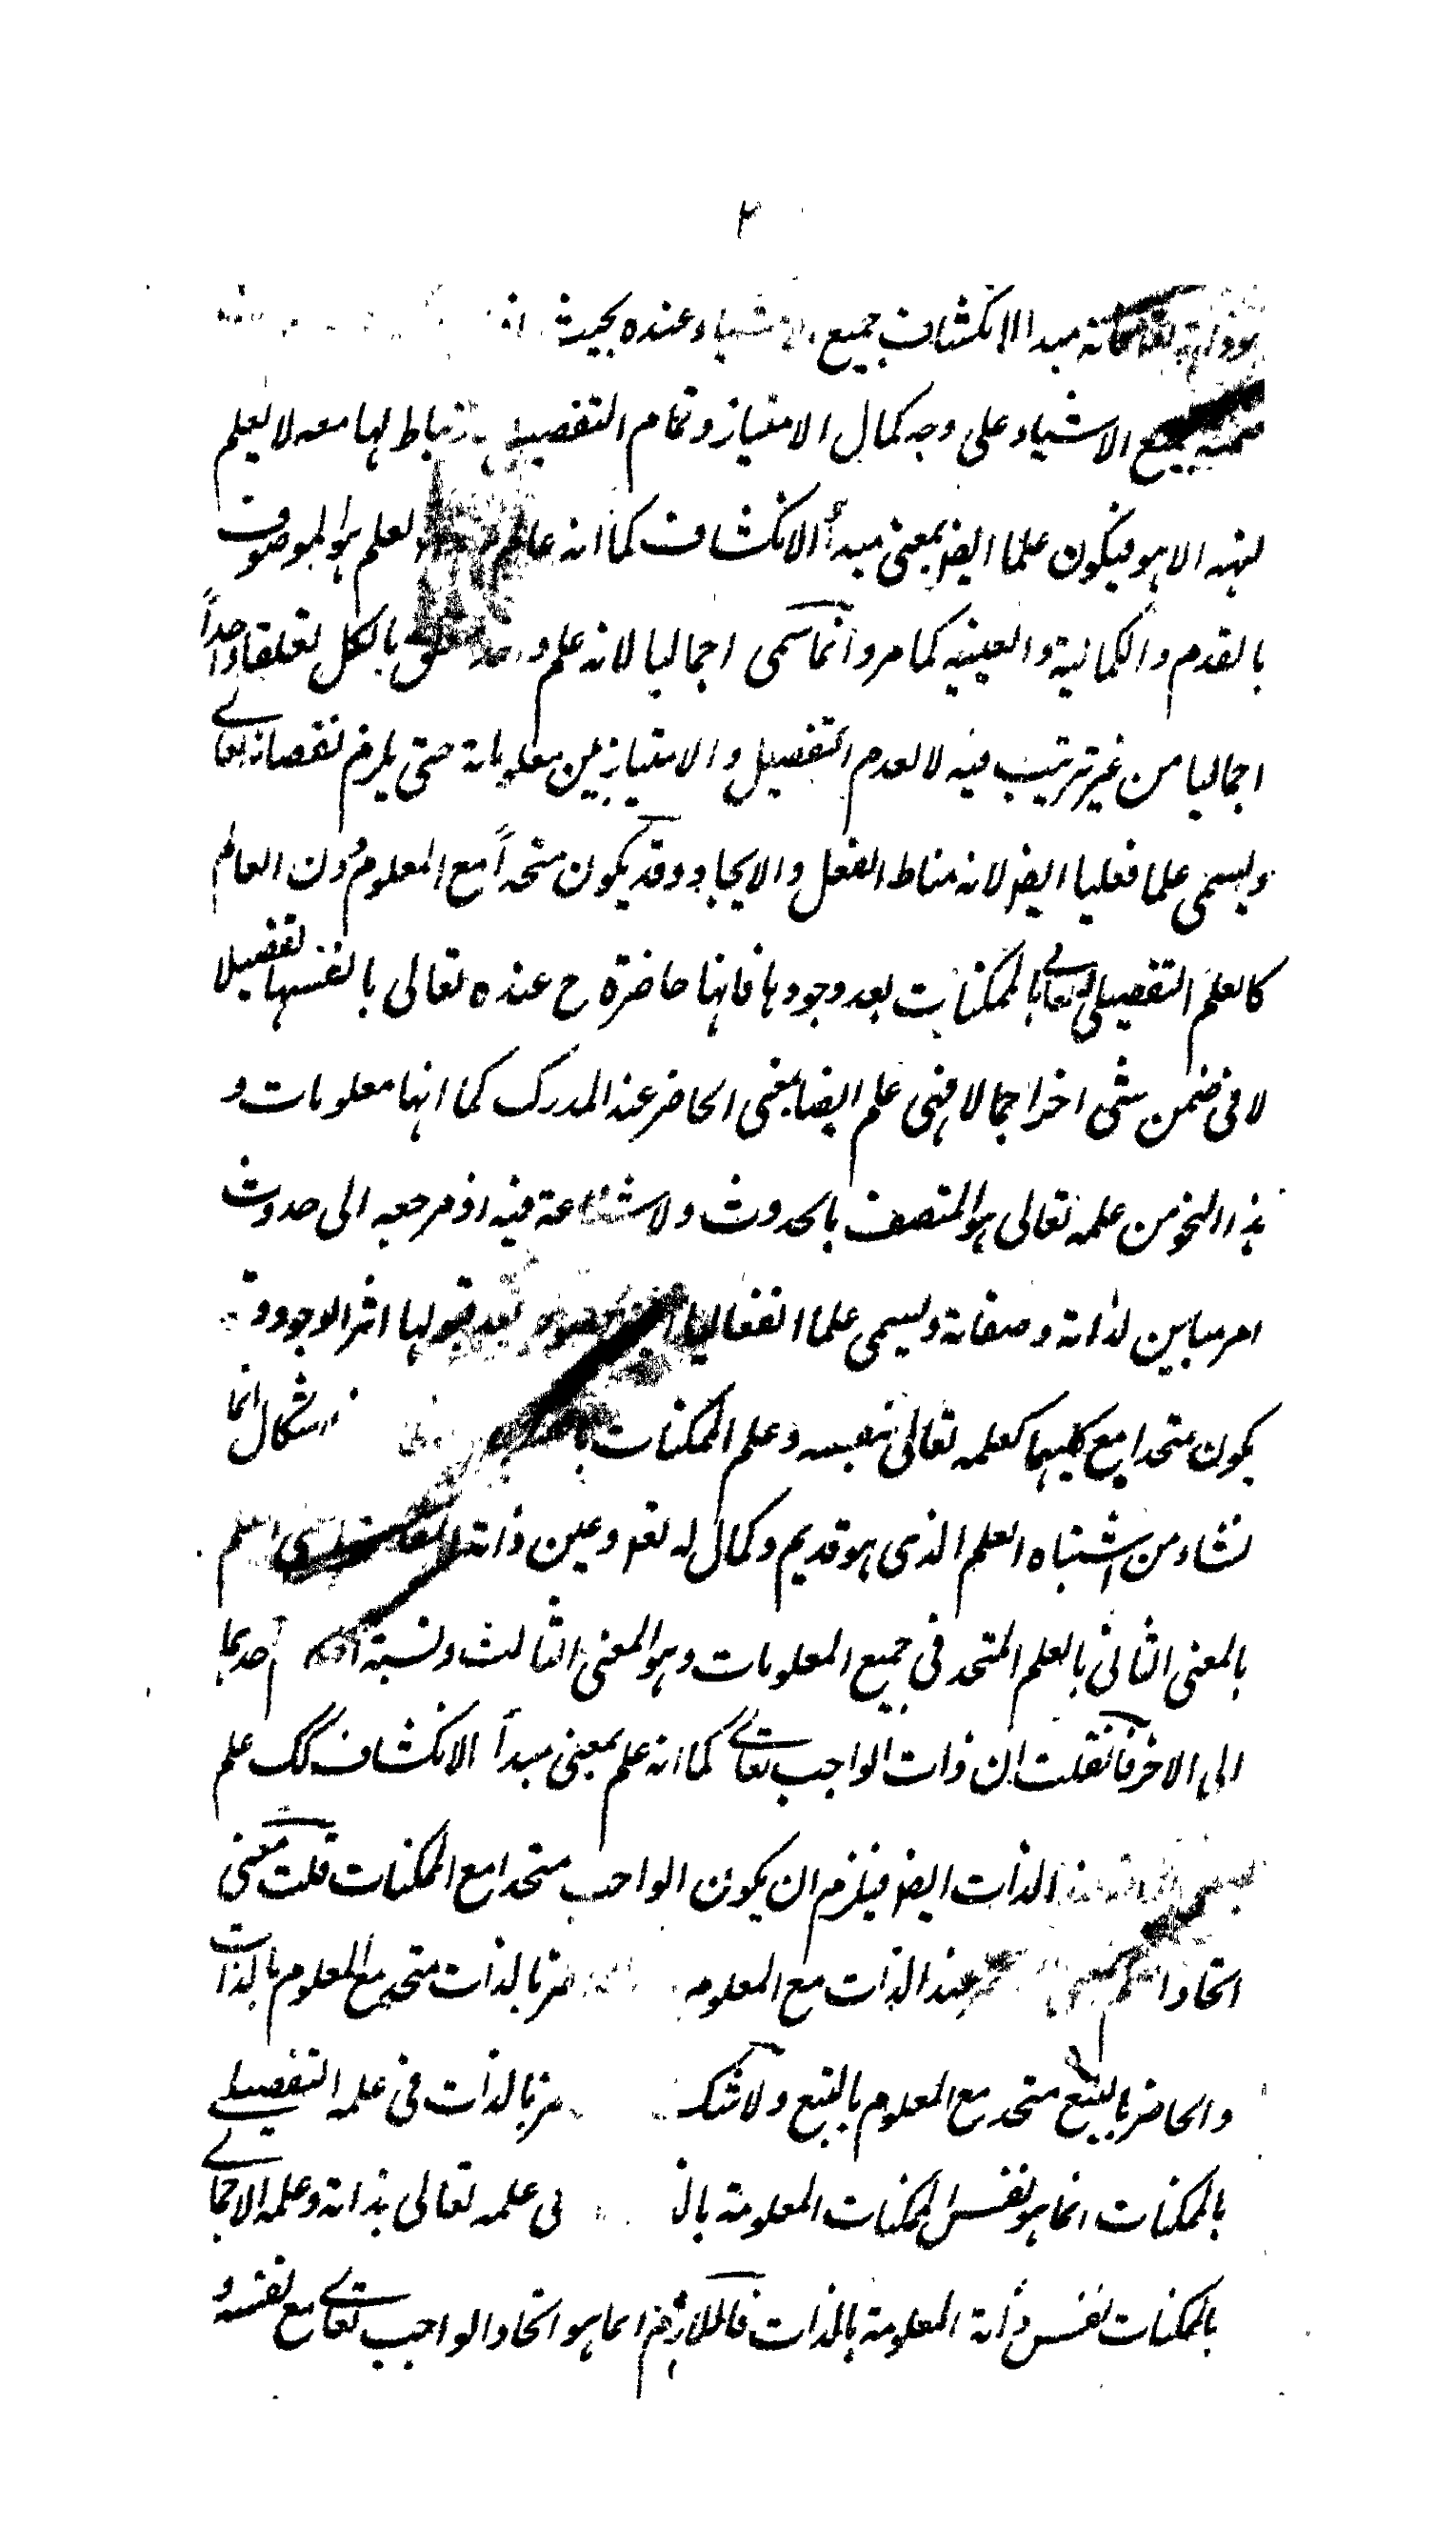 ٢
مبدا لانكشاف جميع الاشياء عنده بحيث
جميع الاشياء على وجه كمال الامتياز وتمام التفصيل لها معه لا يعلم
الا هو فيكون علما ايضا بمعنى مبدأ الانكشاف كما انه عالم العلم هو الموصوف
بالقدم والكمالية والعينية كما مر وانما سمى اجماليا لانه علم بالكل تعلقا واحداً
اجماليا من غير ترتيب فيه لا لعدم التفصيل والامتياز بين معلوماته حتى يلزم نقصانه تعالے
ويسمى علما فعليا ايضا لانه مناط الفعل والايجاد وقد يكون متحداً مع المعلوم دون العالم
كالعلم التفصيلى له تعالے بالممكنات بعد وجودها فانها حاضرة ح عنده تعالى بانفسها تفصيلا
لا فى ضمن شئ اخر اجمالا فهى علم ايضا بمعنى الحاضر عند المدرك كما انها معلومات و
هذا النحو من علمه تعالى هو المتصف بالحدوث ولا شناعة فيه اذ مرجعه الى حدوث
امر مباين لذاته وصفاته ويسمى علما انفعاليا بعد قبولها اثر الوجود وقد
يكون متحدا مع كليهما كعلمه تعالى بنفسه وعلم الممكنات انما
نشاء من اشتباه العلم الذى هو قديم وكمال له تعـ وعين ذاته العلم
بالمعنى الثانى بالعلم المتحد فى جميع المعلومات وهو المعنى الثالث ونسبة احدهما
الى الاخر فان قلت ان ذات الواجب تعالے كما انه علم بمعنى مبدأ الانكشاف كك علم
الذات ايضا فيلزم ان يكون الواجب متحدا مع الممكنات قلت معنى
اتحاد عند الذات مع المعلوم بالذات متحد مع المعلوم بالذات
والحاضر بالتبع متحد مع المعلوم بالتبع ولا شك بالذات فى علمه التفصيلے
بالممكنات انما هو نفس الممكنات المعلومة علمه تعالى بذاته وعلمه الاجمالے
بالممكنات نفس ذاته المعلومة بالذات فاللازم انما هو اتحاد الواجب تعالے مع نفسه و